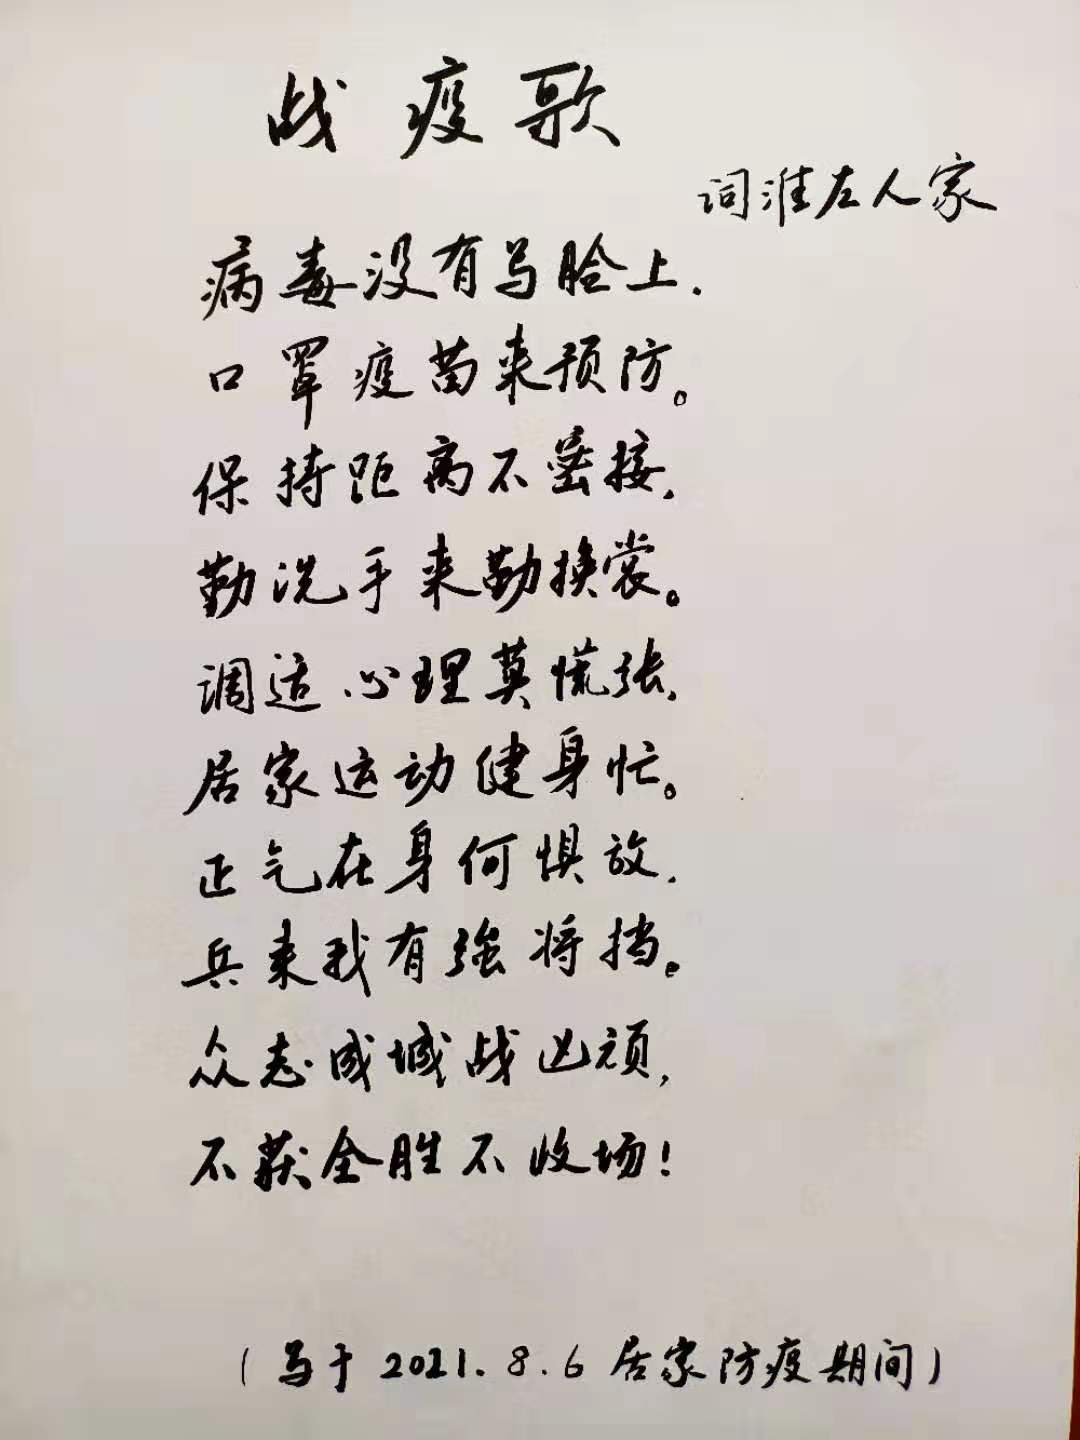 战疫歌
词淮左人家
病毒没有写脸上.
口罩疫苗来预防。
保持距离不密接,
勤洗手来勤换裳。
调适心理莫慌张,
居家运动健身忙。
正气在身何惧放,
兵来我有强将挡。
众志成城战凶顽,
不获全胜不收场!
(写于2021.8.6居家防疫期间)